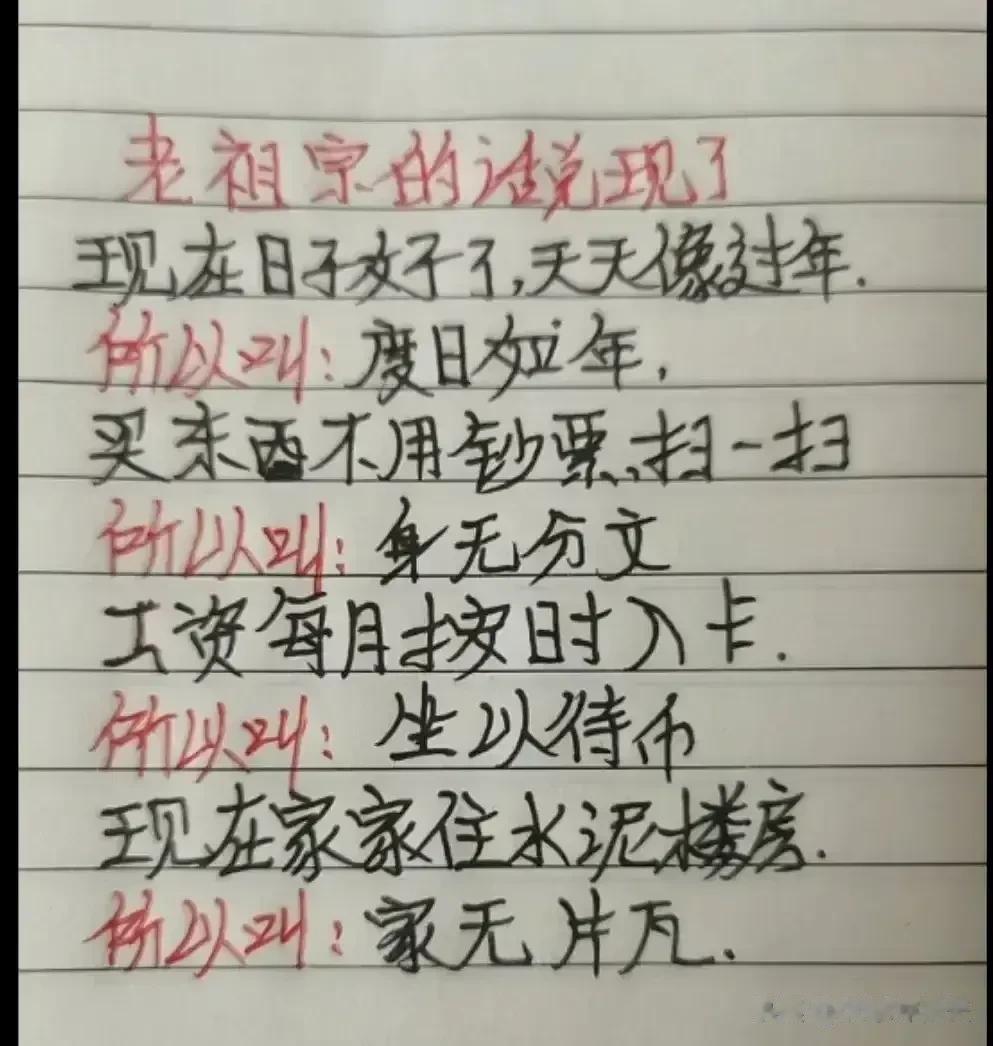 老祖宗的话兑现了
现在日子好了,天天像过年.
所以叫:度日如年.
买东西不用钞票,扫一扫
所以叫:身无分文
工资每月按时入卡.
所以叫:坐以待币
现在家家住水泥楼房.
所以叫:家无片瓦.